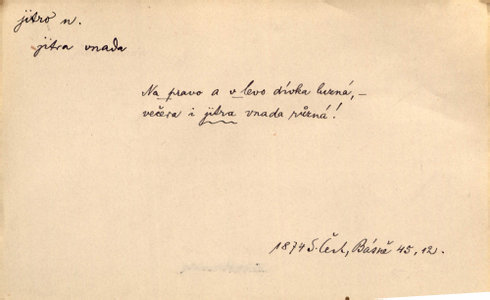 jitro n.
jitra vnada
Na pravo a v levo dívka luzná, –
večera i jitra vnada různá!
1874 S. Čech, Básně 45, 12.